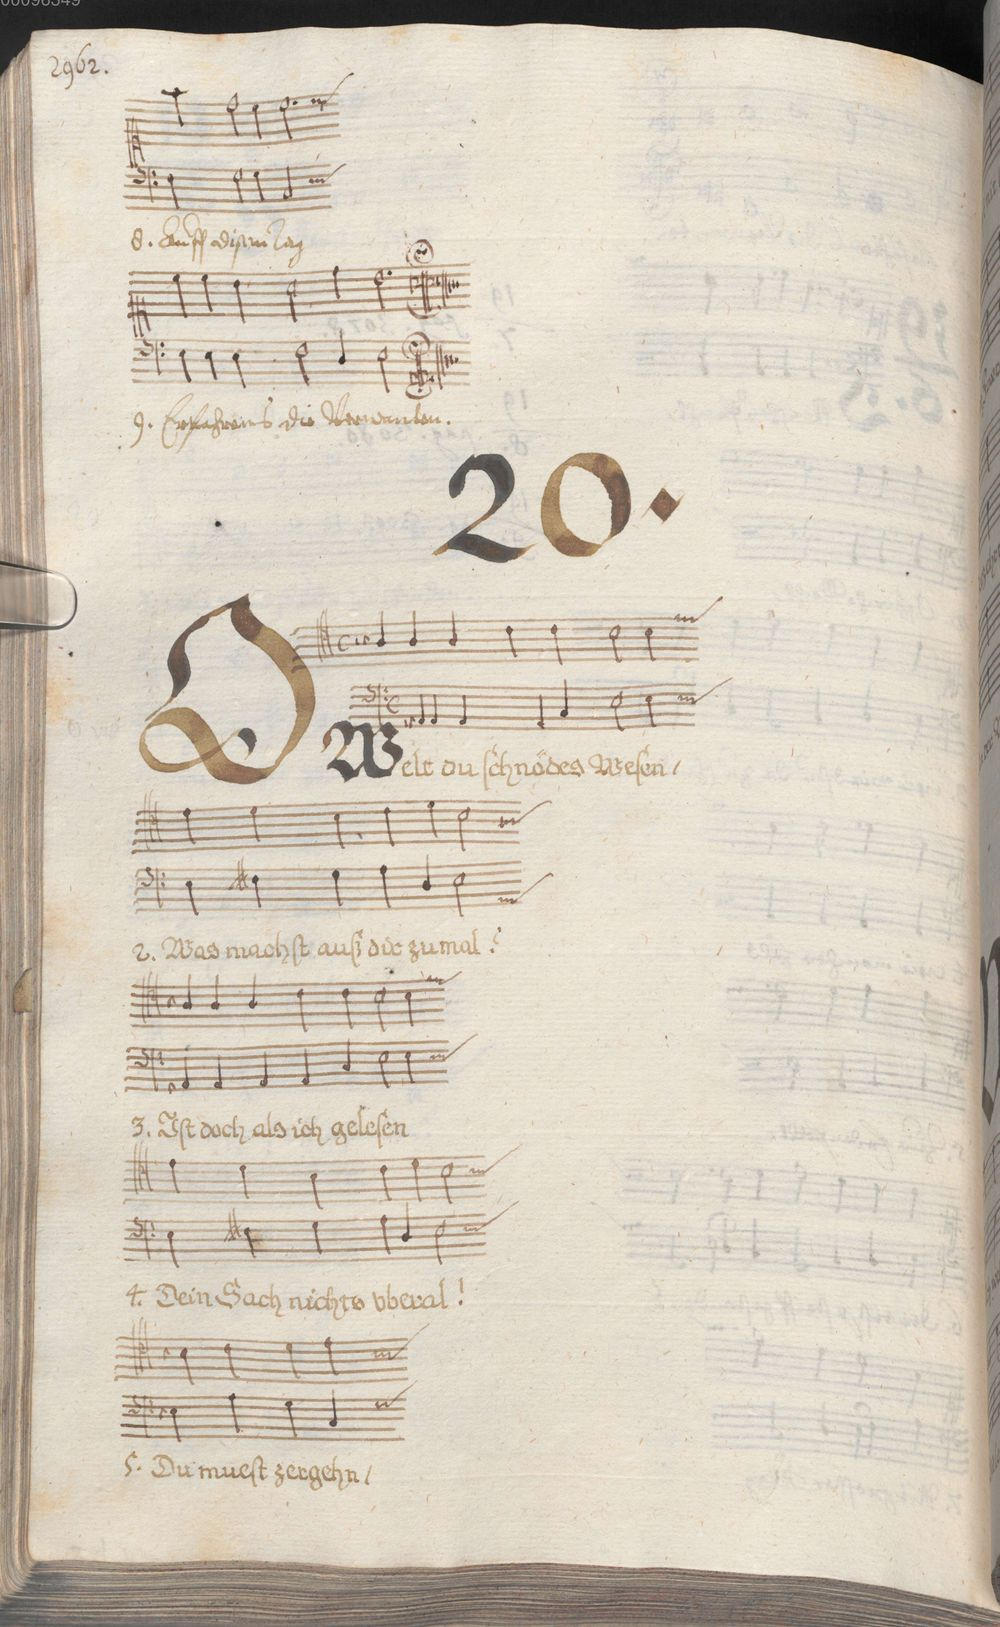 2962.
8. Auff disem Tag
9. Erfahrens die Verwanten.
20.
O
Welt du schnödes Wesen /
2. Was machst auß dir zumal?
3. Ist doch als ich gelesen
4. Dein Sach nichts vberal!
5. Du muest zergehn /